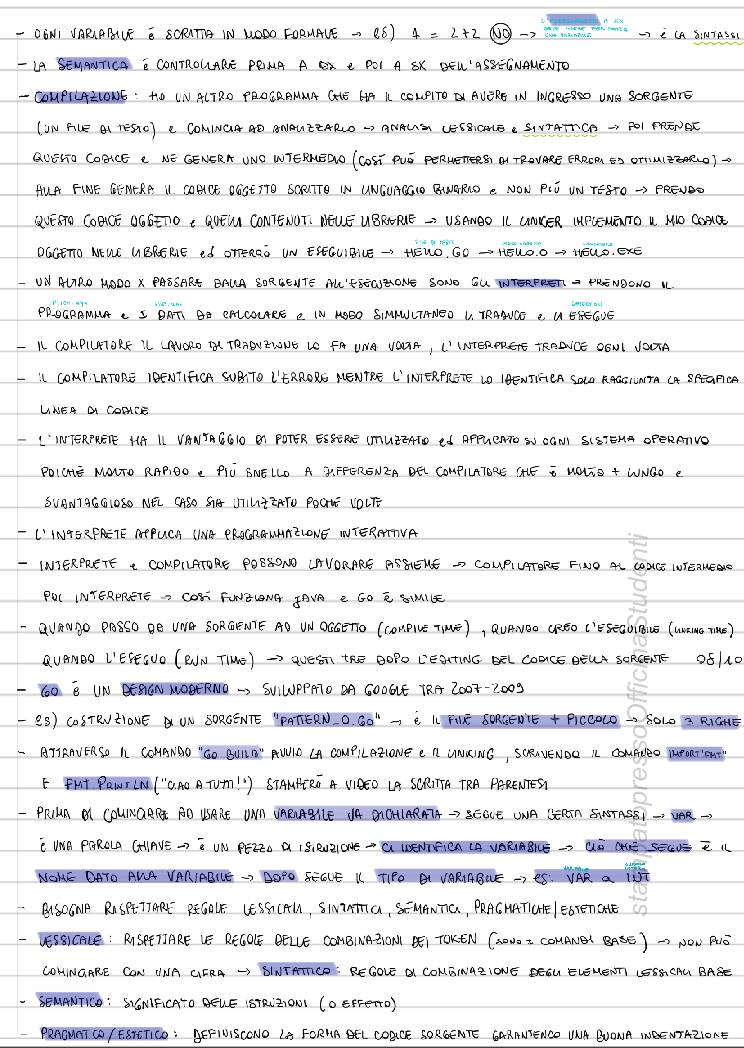 - OGNI VARIABILE È SCRITTA IN MODO FORMALE → ES) 4 = 2+2 NO → → È LA SINTASSI
- LA SEMANTICA È CONTROLLARE PRIMA A DX E POI A SX DELL'ASSEGNAMENTO
- COMPILAZIONE: HO UN ALTRO PROGRAMMA CHE HA IL COMPITO DI AVERE IN INGRESSO UNA SORGENTE
(UN FILE DI TESTO) E COMINCIA AD ANALIZZARLO → ANALISI LESSICALE E SINTATTICA → POI PRENDE
QUESTO CODICE E NE GENERA UNO INTERMEDIO (COSÌ PUÒ PERMETTERSI DI TROVARE ERRORI ED OTTIMIZZARLO) →
ALLA FINE GENERA IL CODICE OGGETTO SCRITTO IN LINGUAGGIO BINARIO E NON PIÙ UN TESTO → PRENDO
QUESTO CODICE OGGETTO E QUELLI CONTENUTI NELLE LIBRERIE → USANDO IL LINKER IMPLEMENTO IL MIO CODICE
OGGETTO NELLE LIBRERIE ED OTTERRÒ UN ESEGUIBILE → HELLO.GO → HELLO.O → HELLO.EXE
- UN ALTRO MODO X PASSARE DALLA SORGENTE ALL'ESECUZIONE SONO GLI INTERPRETI → PRENDONO IL
PROGRAMMA E I DATI DA CALCOLARE E IN MODO SIMMULTANEO LI TRADUCE E LI ESEGUE
- IL COMPILATORE IL LAVORO DI TRADUZIONE LO FA UNA VOLTA, L'INTERPRETE TRADUCE OGNI VOLTA
- IL COMPILATORE IDENTIFICA SUBITO L'ERRORE MENTRE L'INTERPRETE LO IDENTIFICA SOLO RAGGIUNTA LA SPECIFICA
LINEA DI CODICE
- L'INTERPRETE HA IL VANTAGGIO DI POTER ESSERE UTILIZZATO ED APPLICATO SU OGNI SISTEMA OPERATIVO
POICHÈ MOLTO RAPIDO E PIÙ SNELLO A DIFFERENZA DEL COMPILATORE CHE È MOLTO + LUNGO E
SVANTAGGIOSO NEL CASO SIA UTILIZZATO POCHE VOLTE
- L'INTERPRETE APPLICA UNA PROGRAMMAZIONE INTERATTIVA
- INTERPRETE E COMPILATORE POSSONO LAVORARE ASSIEME → COMPILATORE FINO AL CODICE INTERMEDIO
POI INTERPRETE → COSÌ FUNZIONA JAVA E GO È SIMILE
- QUANDO PASSO DA UNA SORGENTE AD UN OGGETTO (COMPILE TIME), QUANDO CREO L'ESEGUIBILE (LINKING TIME)
QUANDO L'ESEGUO (RUN TIME) → QUESTI TRE DOPO L'EDITING DEL CODICE DELLA SORGENTE 08/10
- GO È UN DESIGN MODERNO → SVILUPPATO DA GOOGLE TRA 2007-2009
- ES) COSTRUZIONE DI UN SORGENTE "PATTERN_0.GO" → È IL FILE SORGENTE + PICCOLO → SOLO 3 RIGHE
- ATTRAVERSO IL COMANDO "GO BUILD" AVVIO LA COMPILAZIONE E IL LINKING, SCRIVENDO IL COMANDO IMPORT"FMT"
E FMT.PRINTLN ("CIAO A TUTTI!") STAMPERÒ A VIDEO LA SCRITTA TRA PARENTESI
- PRIMA DI COMINCIARE AD USARE UNA VARIABILE VA DICHIARATA → SEGUE UNA CERTA SINTASSI → VAR →
È UNA PAROLA CHIAVE → È UN PEZZO DI ISTRUZIONE → CI IDENTIFICA LA VARIABILE → CIÒ CHE SEGUE È IL
NOME DATO ALLA VARIABILE → DOPO SEGUE IL TIPO DI VARIABILE → ES: VAR a INT
- BISOGNA RISPETTARE REGOLE LESSICALI, SINTATTICI, SEMANTICI, PRAGMATICHE/ESTETICHE
- LESSICALE: RISPETTARE LE REGOLE DELLE COMBINAZIONI DEI TOKEN (SONO I COMANDI BASE) → NON PUÒ
COMINCIARE CON UNA CIFRA → SINTATTICO: REGOLE DI COMBINAZIONE DEGLI ELEMENTI LESSICALI BASE
- SEMANTICO: SIGNIFICATO DELLE ISTRUZIONI (O EFFETTO)
- PRAGMATICO/ESTETICO: DEFINISCONO LA FORMA DEL CODICE SORGENTE GARANTENDO UNA BUONA INDENTAZIONE
stampato presso Officina Studenti